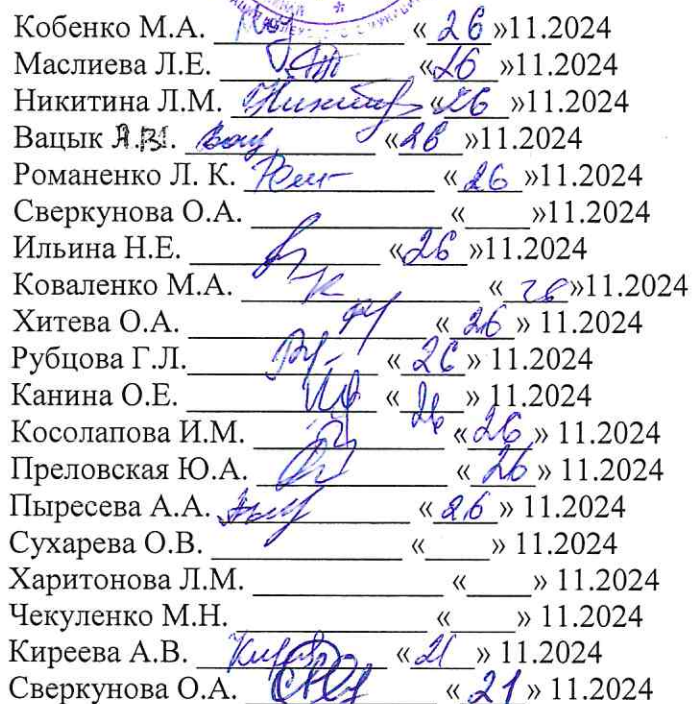 Кобенко М.А. ____________ « 26 »11.2024
Маслиева Л.Е. ____________ «26 »11.2024
Никитина Л.М. ____________ «26 »11.2024
Вацык Я.В. ____________ «26 »11.2024
Романенко Л. К. ____________ « 26 »11.2024
Сверкунова О.А. ____________ «____»11.2024
Ильина Н.Е. ____________ «26 »11.2024
Коваленко М.А. ____________ « 26»11.2024
Хитева О.А. ____________ « 26 » 11.2024
Рубцова Г.Л. ____________ « 26 » 11.2024
Канина О.Е. ____________ « 26 » 11.2024
Косолапова И.М. ____________ «26 » 11.2024
Преловская Ю.А. ____________ « 26 » 11.2024
Пыресева А.А. ____________ « 26 » 11.2024
Сухарева О.В. ____________ «____» 11.2024
Харитонова Л.М. ____________ «____» 11.2024
Чекуленко М.Н. ____________ «____» 11.2024
Киреева А.В. ____________ «21 » 11.2024
Сверкунова О.А. ____________ « 21 » 11.2024